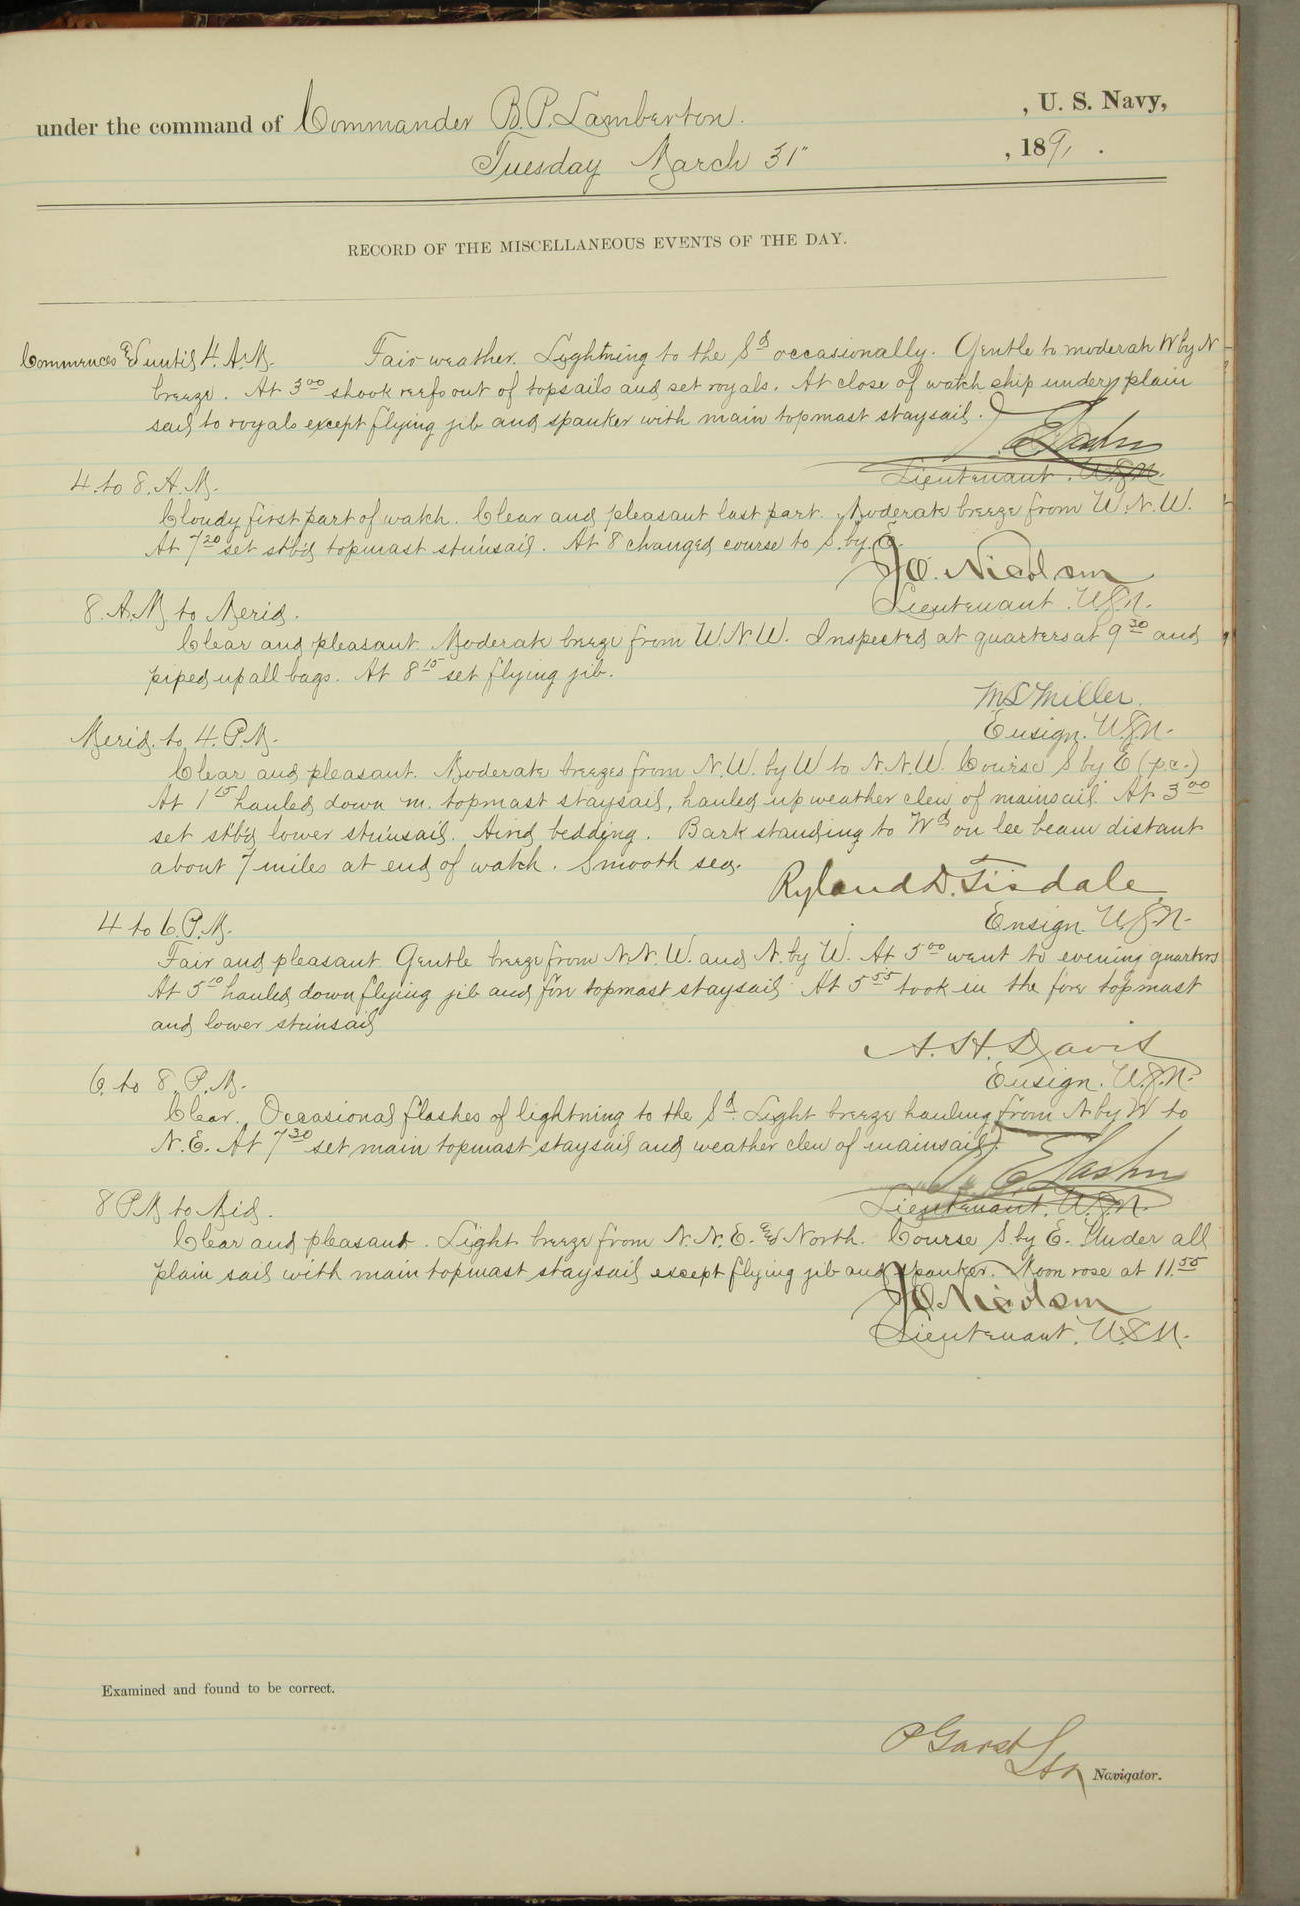 under the command of Commander B.P. Lamberton. , U. S. Navy,
Tuesday March 31" , 1891 .
RECORD OF THE MISCELLANEOUS EVENTS OF THE DAY.
Commences & until 4. A.M. Fair weather. Lightning to the Sd occasionally. Gentle to moderate W by N
breeze. At 3 00 shook reefs out of topsails and set royals. At close of watch ship under plain
sail to royals except flying jib and spanker with main topmast staysail.
Lieutenant. U.S.N.
4. to 8. A.M.
Cloudy first part of watch. Clear and pleasant last part. Moderate breeze from W.N.W.
At 7 20 set stb'd topmast stu'nsail. At 8 changed course to S. by E.
J.O. Nicolson
Lieutenant. U.S.N.
8. A.M. to Merid.
Clear and pleasant. Moderate breeze from W.N.W. Inspected at quarters at 9 30 and
piped up all bags. At 8 15 set flying jib.
M L Miller.
Ensign. U.S.N.
Merid. to 4. P.M.
Clear and pleasant. Moderate breezes from N.W. by W to N.N.W. Course S by E (p.c.)
At 1 15 hauled down m. topmast staysail, hauled up weather clew of mainsail. At 3 00
set stb'd lower stu'nsail. Aired bedding. Bark standing to Wd on lee beam distant
about 7 miles at end of watch. Smooth sea.
Ryland D. Tisdale
Ensign. U.S.N.
4 to 6. P.M.
Fair and pleasant. Gentle breeze from N.N.W. and N. by W. At 5 00 went to evening quarters
At 5 10 hauled down flying jib and fore topmast staysail. At 5 55 took in the fore topmast
and lower stu'nsail
A. H. Davis
Ensign. U.S.N.
6. to 8. P.M.
Clear. Occasional flashes of lightning to the Sd. Light breeze hauling from N by W to
N.E. At 7 30 set main topmast staysail and weather clew of mainsail.
Lieutenant. U.S.N.
8 PM to Mid.
Clear and pleasant. Light breeze from N.N.E. & North. Course S. by E. Under all
plain sail with main topmast staysail except flying jib and spanker. Moon rose at 11.55
J.O. Nicolson
Lieutenant. U.S.N.
Examined and found to be correct.
P Garst
Navigator.